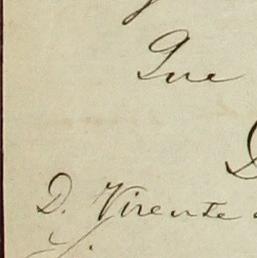 Que
D. Vicente